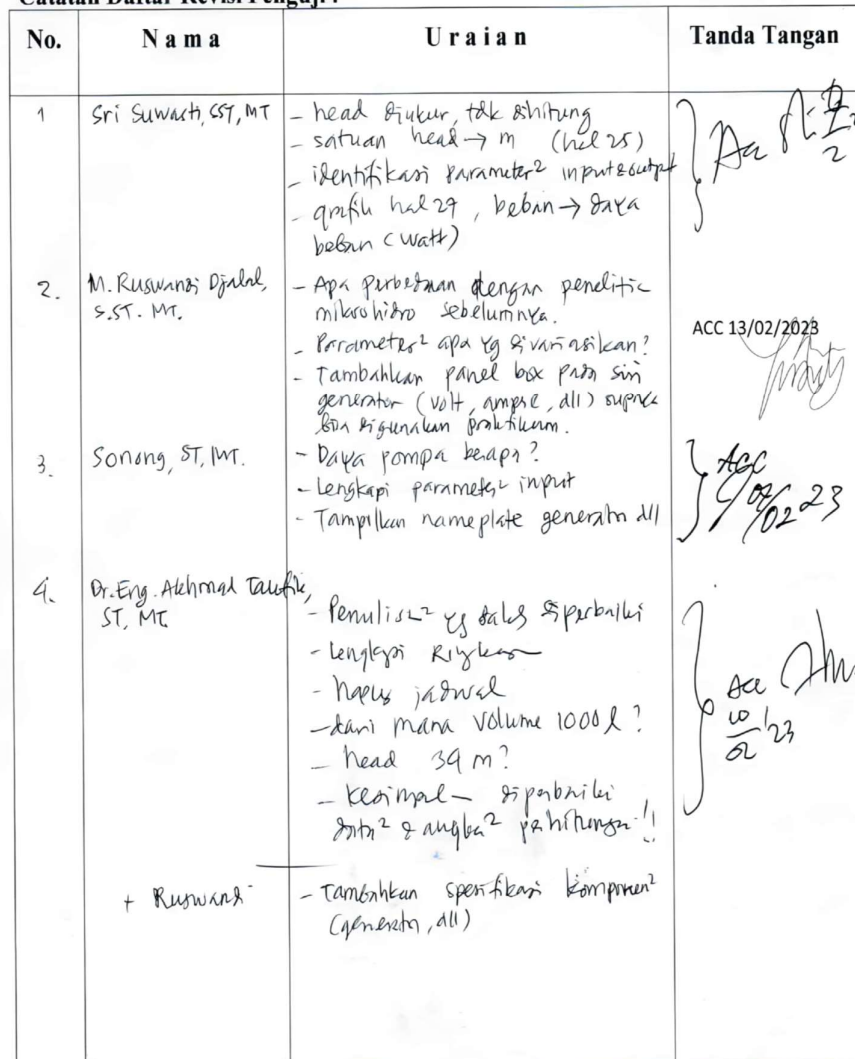 Catatan Daftar Revisi Penguji :
No. Nama Uraian Tanda Tangan
1 Sri Suwasti, SST, MT
- head diukur, tdk dihitung
- satuan head → m (hal 25)
- identifikasi parameter² input & output
- grafik hal 29, beban → daya
beban (Watt)
Acc
2
2. M. Ruswandi Djalal,
S.ST. MT.
- Apa perbedaan dengan penelitia
mikrohidro sebelumnya.
- Parameter² apa yg divariasikan?
- Tambahkan panel box pada sisi
generator (volt, ampere, dll) supaya
bisa digunakan praktikum.
ACC 13/02/2023
3. Sonong, ST, MT.
- Daya pompa berapa?
- Lengkapi parameter² input
- Tampilkan nameplate generator dll
ACC
02 23
4. Dr. Eng. Akhmad Taufik,
ST, MT
- Penulisan² yg salah diperbaiki
- Lengkapi Ringkasan
- hapus jadwal
- dari mana volume 1000 l?
- head 39 m?
- kesimpulan diperbaiki
data² & angka² perhitungan!!
Acc
10/02 23
+ Ruswandi
- Tambahkan spesifikasi komponen²
(generator, dll)